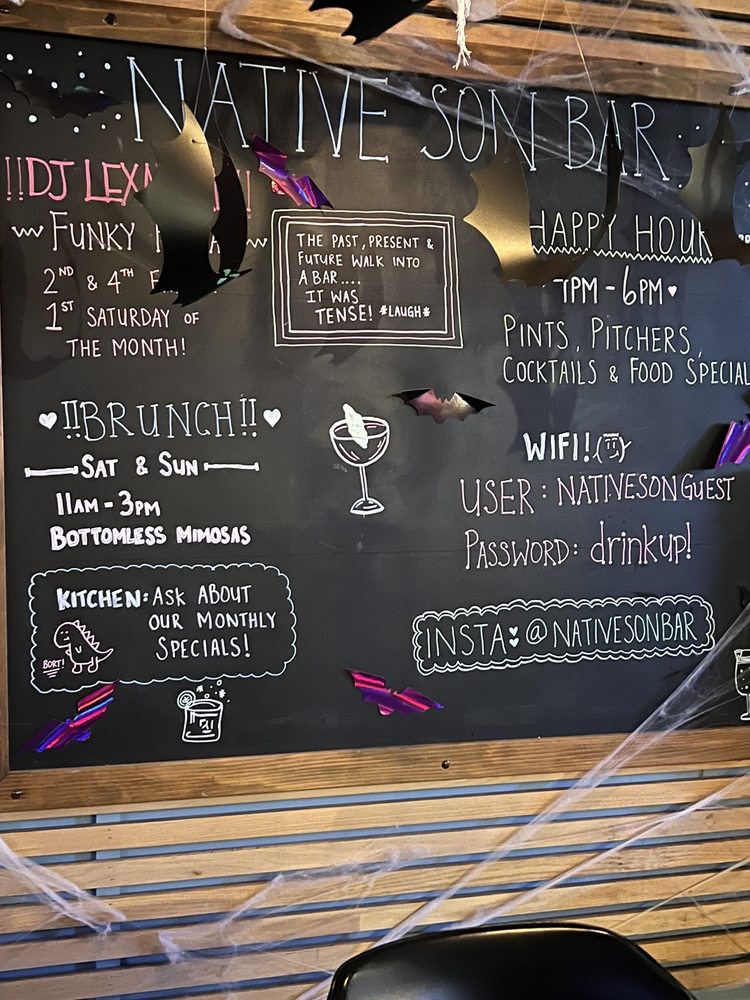 NATIVE SON BAR
!!DJ
FUNKY
2ND & 4TH
1ST SATURDAY OF
THE MONTH!
THE PAST, PRESENT &
FUTURE WALK INTO
A BAR....
IT WAS
TENSE! *LAUGH*
HAPPY HOUR
PM - 6PM
PINTS, PITCHERS,
COCKTAILS & FOOD SPECIAL
!!BRUNCH!!
SAT & SUN
11AM - 3PM
BOTTOMLESS MIMOSAS
WIFI!
USER: NATIVESONGUEST
PASSWORD: drinkup!
KITCHEN: ASK ABOUT
OUR MONTHLY
SPECIALS!
BORT!
INSTA: @NATIVESONBAR